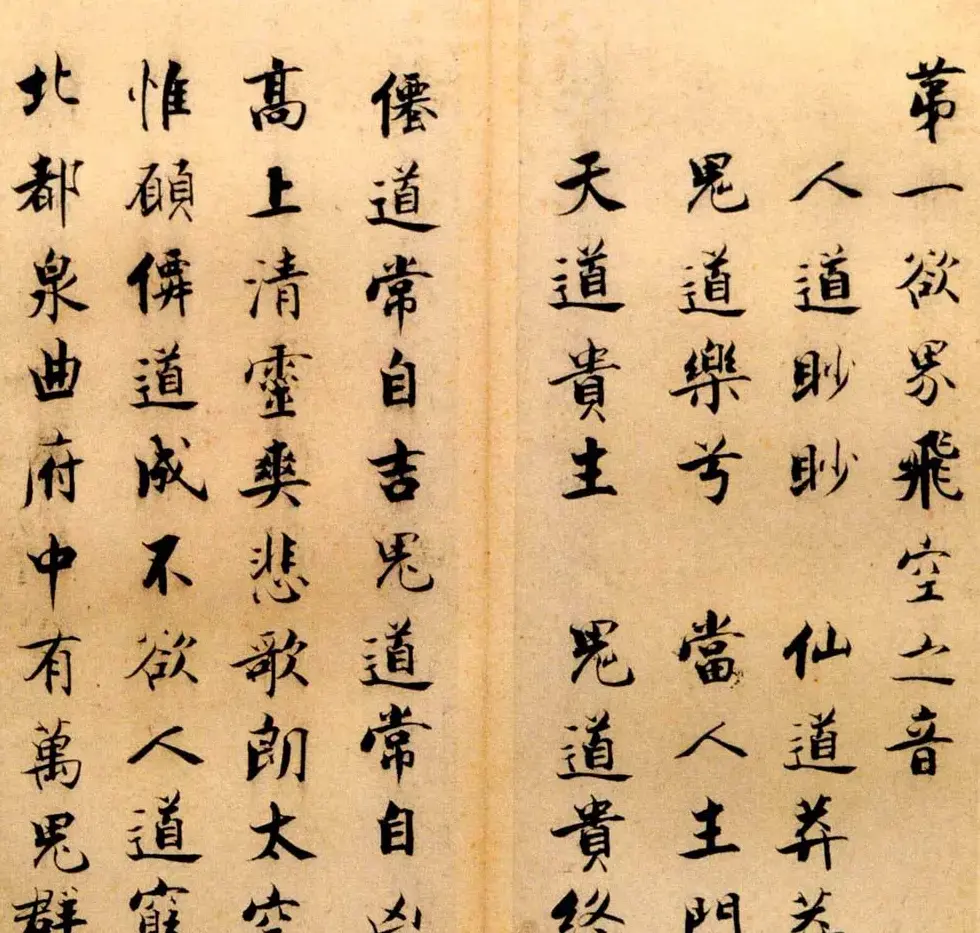 第一欲界飛空之音
人道眇眇 仙道莽
鬼道樂兮 當人主門
天道貴生 鬼道貴終
僊道常自吉鬼道常自凶
高上清靈爽悲歌朗太空
惟願僊道成不欲人道窮
北都泉曲府中有萬鬼群